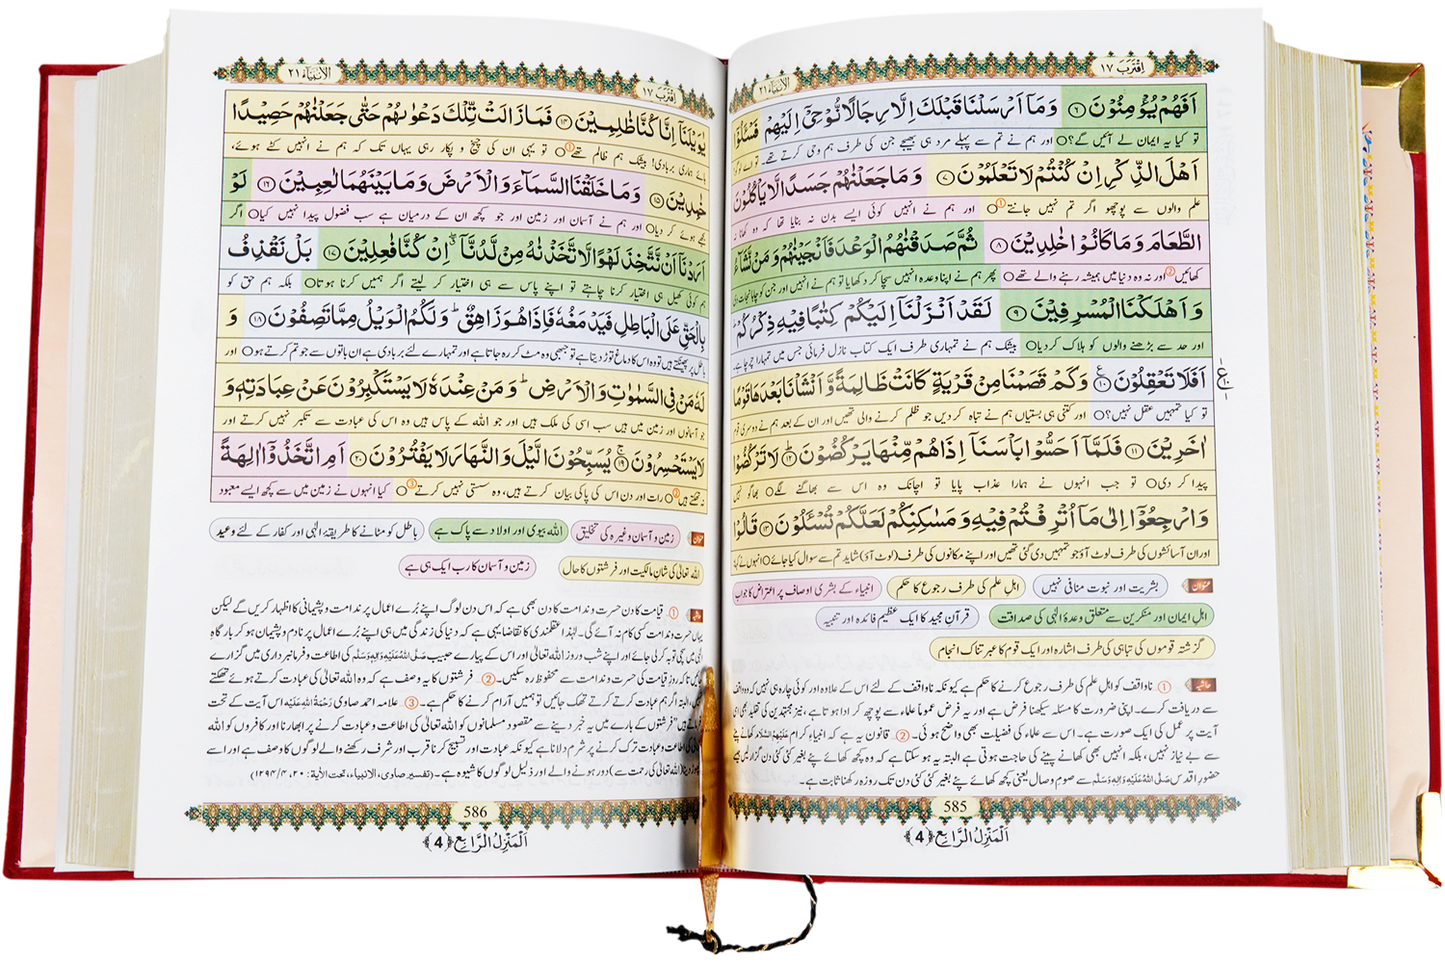 اِقْتَرَبَ ١٧
الْاَنْبِيَآء ٢١
اَفَهُمْ يُؤْمِنُوْنَ ۝٦ وَمَاۤ اَرْسَلْنَا قَبْلَكَ اِلَّا رِجَالًا نُّوْحِيْۤ اِلَيْهِمْ فَسْـَٔلُوْۤا
تو کیا یہ ایمان لے آئیں گے؟ اور ہم نے تم سے پہلے مرد ہی بھیجے جن کی طرف ہم وحی کرتے تھے۔ تو اے لوگو
اَهْلَ الذِّكْرِ اِنْ كُنْتُمْ لَا تَعْلَمُوْنَ ۝٧ وَمَا جَعَلْنٰهُمْ جَسَدًا لَّا يَاْكُلُوْنَ
علم والوں سے پوچھو اگر تم نہیں جانتے ① اور ہم نے انہیں کوئی ایسے بدن نہ بنایا تھا کہ وہ کھانا نہ
الطَّعَامَ وَمَا كَانُوْا خٰلِدِيْنَ ۝٨ ثُمَّ صَدَقْنٰهُمُ الْوَعْدَ فَاَنْجَيْنٰهُمْ وَمَنْ نَّشَآءُ
کھائیں ② اور نہ وہ دنیا میں ہمیشہ رہنے والے تھے پھر ہم نے اپنا وعدہ انہیں سچا کر دکھایا تو ہم نے انہیں اور جن کو چاہا نجات دی
وَاَهْلَكْنَا الْمُسْرِفِيْنَ ۝٩ لَقَدْ اَنْزَلْنَاۤ اِلَيْكُمْ كِتٰبًا فِيْهِ ذِكْرُكُمْ
اور حد سے بڑھنے والوں کو ہلاک کر دیا بیشک ہم نے تمہاری طرف ایک کتاب نازل فرمائی جس میں تمہارا چرچا ہے۔
اَفَلَا تَعْقِلُوْنَ ۝١٠ وَكَمْ قَصَمْنَا مِنْ قَرْيَةٍ كَانَتْ ظَالِمَةً وَّاَنْشَاْنَا بَعْدَهَا قَوْمًا
تو کیا تمہیں عقل نہیں؟ اور کتنی ہی بستیاں ہم نے تباہ کر دیں جو ظلم کرنے والی تھیں اور ان کے بعد ہم نے دوسری قوم
اٰخَرِيْنَ ۝١١ فَلَمَّاۤ اَحَسُّوْا بَاْسَنَاۤ اِذَا هُمْ مِّنْهَا يَرْكُضُوْنَ ۝١٢ لَا تَرْكُضُوْا
پیدا کر دی تو جب انہوں نے ہمارا عذاب پایا تو اچانک وہ اس سے بھاگنے لگے بھاگو نہیں
وَارْجِعُوْۤا اِلٰى مَاۤ اُتْرِفْتُمْ فِيْهِ وَمَسٰكِنِكُمْ لَعَلَّكُمْ تُسْـَٔلُوْنَ ۝١٣ قَالُوْا
اور ان آسائشوں کی طرف لوٹ آؤ جو تمہیں دی گئی تھیں اور اپنے مکانوں کی طرف (لوٹ آؤ) شاید تم سے سوال کیا جائے انہوں نے کہا
عنوان بشریت اور نبوت منافی نہیں اہلِ علم کی طرف رجوع کا حکم انبیاء کے بشری اوصاف پر اعتراض کا جواب
اہلِ ایمان اور منکرین سے متعلق وعدۂ الٰہی کی صداقت قرآنِ مجید کا ایک عظیم فائدہ اور تنبیہ
گزشتہ قوموں کی تباہی کی طرف اشارہ اور ایک قوم کا عبرتناک انجام
حاشیہ ①۔ ناواقف کو اہلِ علم کی طرف رجوع کرنے کا حکم ہے کیونکہ ناواقف کے لئے اس کے علاوہ اور کوئی چارہ ہی نہیں کہ وہ واقف
سے دریافت کرے۔ اپنی ضرورت کا مسئلہ سیکھنا فرض ہے اور یہ فرض عموماً علماء سے پوچھ کر ادا ہوتا ہے، نیز مجتہدین کی تقلید بھی اس
آیت پر عمل کی ایک صورت ہے۔ اس سے علماء کی فضیلت بھی واضح ہوئی۔ ②۔ قانون یہ ہے کہ انبیاءِ کرام عَلَيْهِمُ السَّلَام کھانے پینے
سے بے نیاز نہیں، بلکہ انہیں بھی کھانے پینے کی حاجت ہوتی ہے البتہ یہ ہو سکتا ہے کہ وہ کچھ کھائے پئے بغیر کئی کئی دن گزار لیں جیسے
حضورِ اقدس صَلَّی اللہُ عَلَیْہِ وَاٰلِہٖ وَسَلَّم سے صومِ وصال یعنی کچھ کھائے پئے بغیر کئی کئی دن تک روزہ رکھنا ثابت ہے۔
585
اَلْمَنْزِلُ الرَّابِع ﴿4﴾
اِقْتَرَبَ ١٧
الْاَنْبِيَآء ٢١
يٰوَيْلَنَاۤ اِنَّا كُنَّا ظٰلِمِيْنَ ۝١٤ فَمَا زَالَتْ تِّلْكَ دَعْوٰىهُمْ حَتّٰى جَعَلْنٰهُمْ حَصِيْدًا
ہائے ہماری بربادی! بیشک ہم ظالم تھے ① تو یہی ان کی چیخ و پکار رہی یہاں تک کہ ہم نے انہیں کٹے ہوئے،
خٰمِدِيْنَ ۝١٥ وَمَا خَلَقْنَا السَّمَآءَ وَالْاَرْضَ وَمَا بَيْنَهُمَا لٰعِبِيْنَ ۝١٦ لَوْ
بجھے ہوئے کر دیا اور ہم نے آسمان اور زمین اور جو کچھ ان کے درمیان ہے سب فضول پیدا نہیں کیا اگر
اَرَدْنَاۤ اَنْ نَّتَّخِذَ لَهْوًا لَّاتَّخَذْنٰهُ مِنْ لَّدُنَّاۤ اِنْ كُنَّا فٰعِلِيْنَ ۝١٧ بَلْ نَقْذِفُ
ہم کوئی کھیل ہی اختیار کرنا چاہتے تو اپنے پاس سے ہی اختیار کر لیتے اگر ہمیں کرنا ہوتا بلکہ ہم حق کو
بِالْحَقِّ عَلَى الْبَاطِلِ فَيَدْمَغُهٗ فَاِذَا هُوَ زَاهِقٌ وَلَكُمُ الْوَيْلُ مِمَّا تَصِفُوْنَ ۝١٨ وَ
باطل پر پھینکتے ہیں تو وہ اس کا دماغ توڑ دیتا ہے تو جبھی وہ مٹ کر رہ جاتا ہے اور تمہارے لئے بربادی ہے ان باتوں سے جو تم کرتے ہو اور
لَهٗ مَنْ فِى السَّمٰوٰتِ وَالْاَرْضِ وَمَنْ عِنْدَهٗ لَا يَسْتَكْبِرُوْنَ عَنْ عِبَادَتِهٖ وَ
جو آسمانوں اور زمین میں ہیں سب اسی کی ملک ہیں اور جو اللہ کے پاس ہیں وہ اس کی عبادت سے تکبر نہیں کرتے اور
لَا يَسْتَحْسِرُوْنَ ۝١٩ يُسَبِّحُوْنَ الَّيْلَ وَالنَّهَارَ لَا يَفْتُرُوْنَ ۝٢٠ اَمِ اتَّخَذُوْۤا اٰلِهَةً
نہ تھکتے ہیں ② رات اور دن اس کی پاکی بیان کرتے ہیں، وہ سستی نہیں کرتے ③ کیا انہوں نے زمین میں سے کچھ ایسے معبود
زمین و آسمان وغیرہ کی تخلیق اللہ بیوی اور اولاد سے پاک ہے باطل کو مٹانے کا طریقۂ الٰہی اور کفار کے لئے وعید
اللہ تعالیٰ کی شانِ مالکیت اور فرشتوں کا حال زمین و آسمان کا رب ایک ہی ہے
①۔ قیامت کا دن حسرت و ندامت کا دن بھی ہے کہ اس دن لوگ اپنے بُرے اعمال پر ندامت و پشیمانی کا اظہار کریں گے لیکن
یہاں حسرت و ندامت کسی کام نہ آئے گی۔ لہٰذا عقلمندی کا تقاضا یہی ہے کہ دنیا کی زندگی میں ہی اپنے بُرے اعمال پر نادم و پشیمان ہو کر بارگاہِ
الٰہی میں سچی توبہ کر لی جائے اور اپنے شب و روز اللہ تعالیٰ اور اس کے پیارے حبیب صَلَّی اللہُ عَلَیْہِ وَاٰلِہٖ وَسَلَّم کی اطاعت و فرمانبرداری میں گزارے
جائیں تاکہ روزِ قیامت کی حسرت و ندامت سے محفوظ رہ سکیں۔ ②۔ فرشتوں کا یہ وصف ہے کہ وہ اللہ تعالیٰ کی عبادت کرتے ہوئے تھکتے
نہیں، البتہ اگر ہم عبادت کرتے کرتے تھک جائیں تو ہمیں آرام کرنے کا حکم ہے۔ ③۔ علامہ احمد صاوی رَحْمَۃُ اللہِ عَلَیْہ اس آیت کے تحت
فرماتے ہیں: فرشتوں کے بارے میں یہ خبر دینے سے مقصود مسلمانوں کو اللہ تعالیٰ کی اطاعت و عبادت کرنے پر ابھارنا اور کافروں کو اللہ
تعالیٰ کی اطاعت و عبادت ترک کرنے پر شرم دلانا ہے کیونکہ عبادت اور تسبیح کرنا قرب اور شرف رکھنے والے لوگوں کا وصف ہے اور اسے
چھوڑ دینا (اللہ تعالیٰ کی رحمت سے) دور ہونے والے اور ذلیل لوگوں کا شیوہ ہے۔ (تفسیر صاوی، الانبیاء، تحت الآیۃ: ۲۰، ۴/۱۲۹۴)
586
اَلْمَنْزِلُ الرَّابِع ﴿4﴾